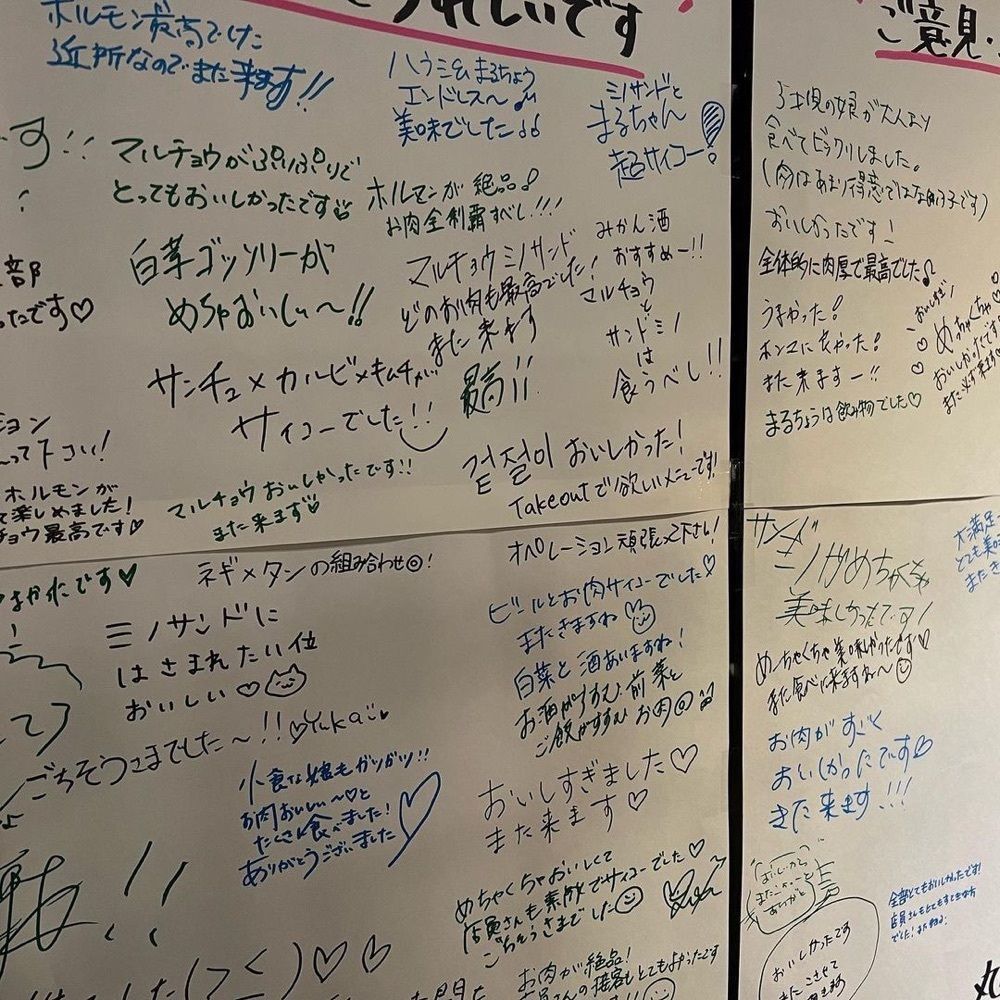 うれしいです
ご意見・
ホルモン最高でした
近所なのでまた来ます!!
ハラミ&まるちょう
エンドレス〜♪
美味でした♪♪
ミノサンドと
まるちゃん
超サイコー!
す!!
マルチョウがぷりぷりで
とってもおいしかったです
ホルモンが絶品!
お肉全制覇すべし!!!
白菜ゴッソリーが
めちゃおいしぃ〜!!
マルチョウミノサンド
どのお肉も最高でした!
また来ます
みかん酒
おすすめー!!
マルチョウ
と
サンドミノ
は
食うべし!!
部
たです♡
サンチュ×カルビ×キムチ
サイコーでした!!
最高!!
って下さい!
ホルモンが
楽しめました!
チョウ最高です♡
マルチョウおいしかったです!!
また来ます
겉절이 おいしかった!
Takeoutで欲しいメニューです!
5才児の娘が大人より
食べてビックリしました。
(肉はあまり得意ではない子です)
おいしかったです!
全体的に肉厚で最高でした♪
うまかった!
ホンマに良かった!
また来ますー!!
まるちょうは飲み物でした♡
おいしすぎ!
めっちゃくちゃ♡
おいしかったです
また必ず来ます
たです♡
ネギ×タンの組み合わせ◎!
ミノサンドに
はさまれたい位
おいしい♡
ごちそうさまでした〜!!♡Yuka
小食な娘もガツガツ!!
お肉おいしい〜♡と
たくさん食べました!
ありがとうございました♡
オペレーション頑張って下さい!
ビールとお肉サイコーでした♡
またきますね
白菜と酒あいますね!
お酒がすすむ前菜と
ご飯がすすむお肉◎
おいしすぎました♡
また来ます♡
めちゃくちゃおいしくて
店員さんも素敵でサイコーでした♡
ごちそうさまでした
お肉が絶品!
店員さんの接客もとてもよかったです
サンド
ミノがめちゃ
美味しかったです!
めーちゃくちゃ美味しかったです♡
また食べに来ますね〜
お肉がすごく
おいしかったです♡
また来ます!!!
大満足
とても美味
またき
おいしかった
また
ありがと
おいしかったです
またこさせて
全部とてもおいしかったです!
店員さんもとてもすてきな方
でした!